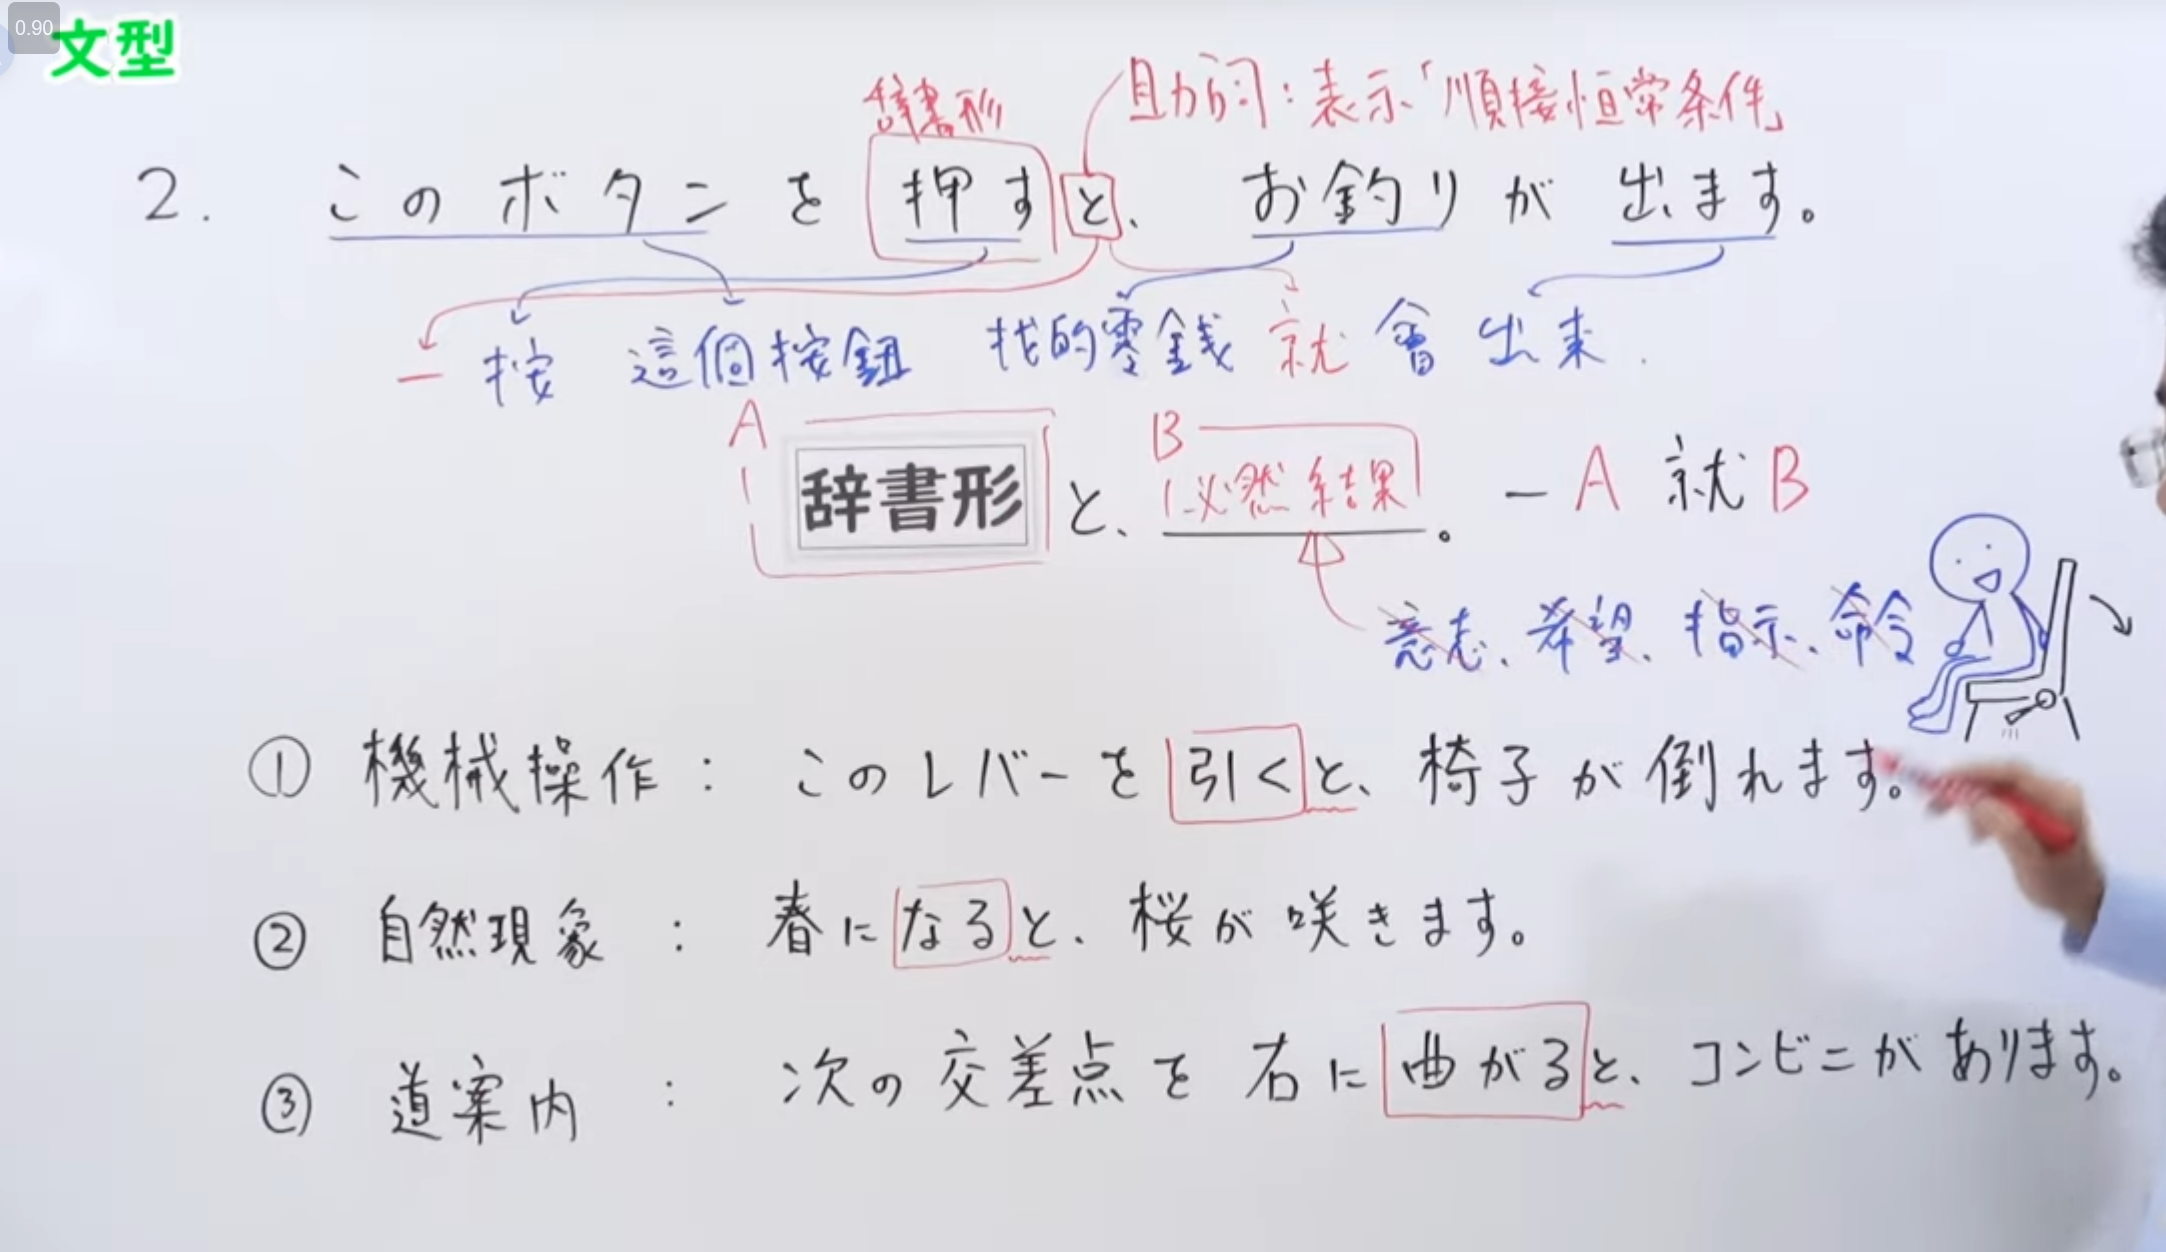 0.90
文型
辞書形
助詞：表示「順接恒常条件」
2. このボタンを押すと、お釣りが出ます。
一按這個按鈕 找的零錢就會出来.
A
B
辞書形と、必然結果。一A就B
意志、希望、指示、命令
① 機械操作：このレバーを引くと、椅子が倒れます。
② 自然現象：春になると、桜が咲きます。
③ 道案内：次の交差点を右に曲がると、コンビニがあります。